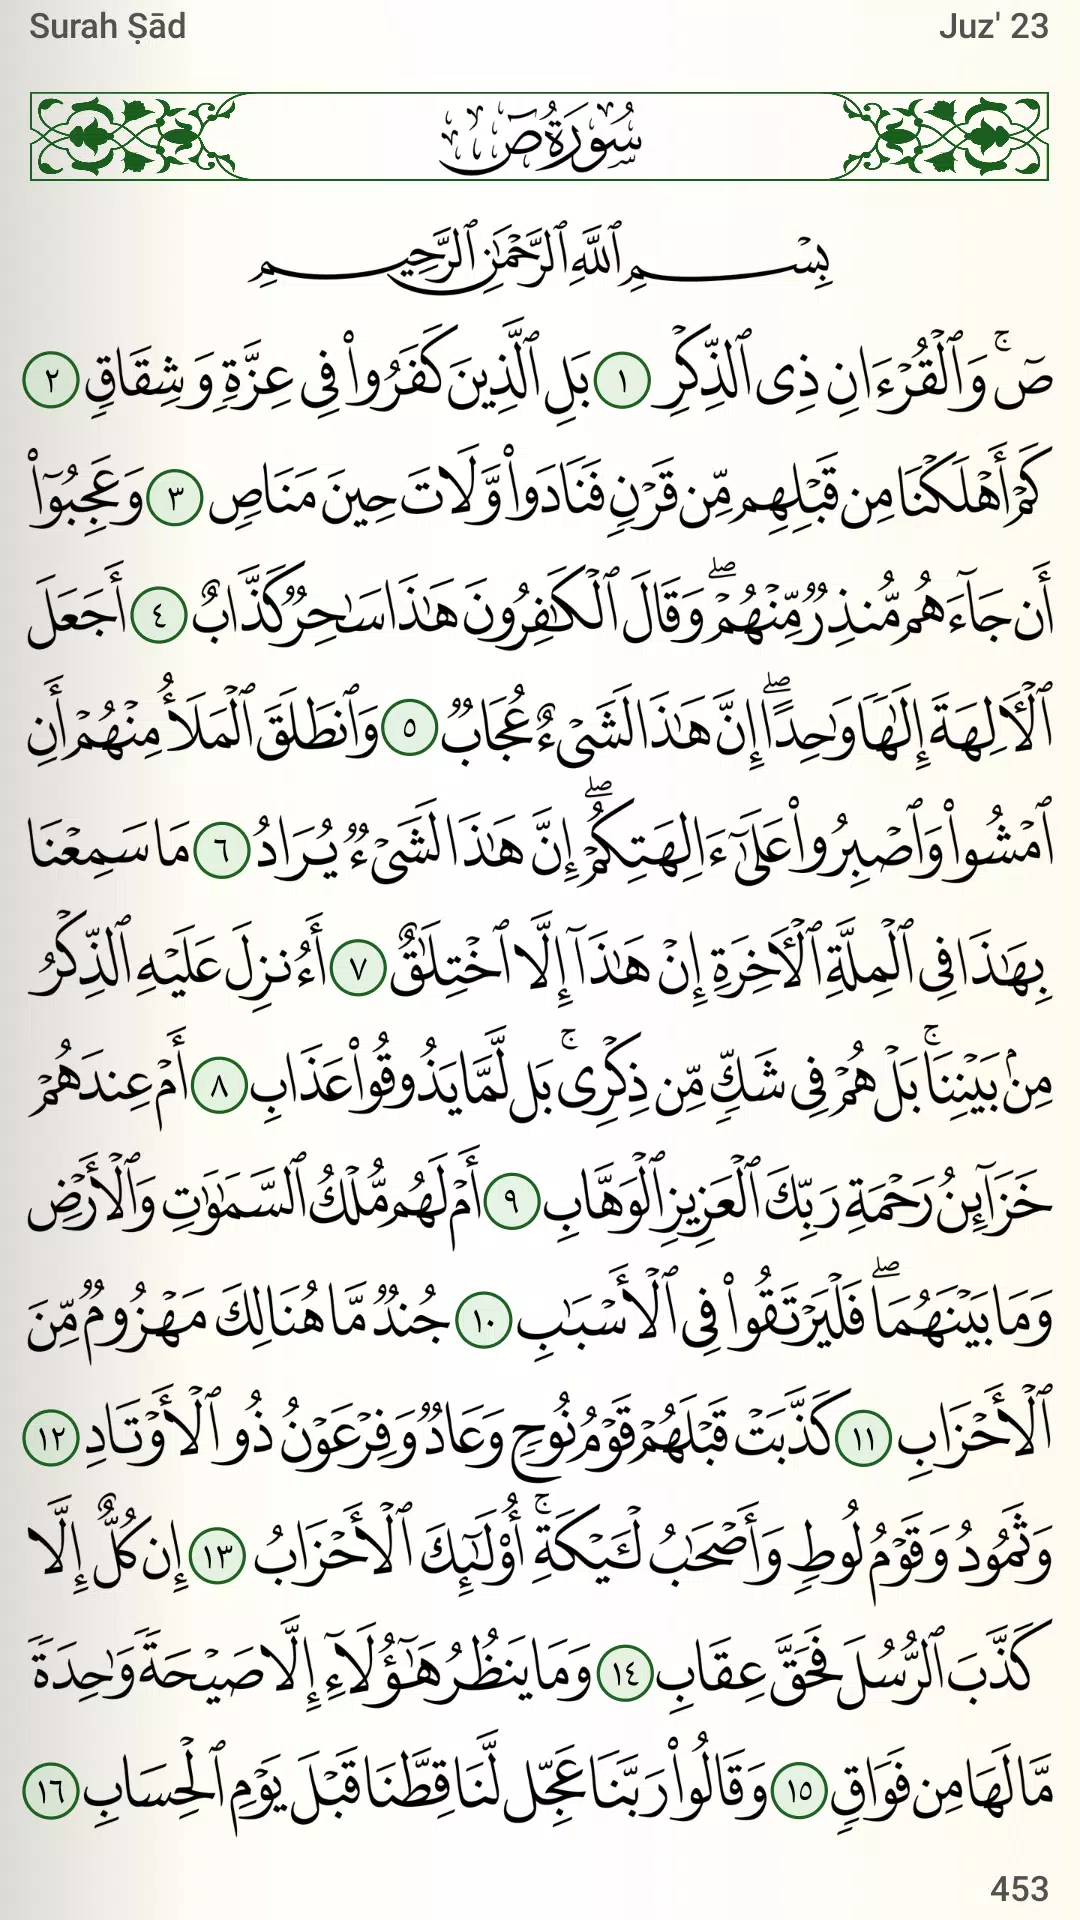 Surah Ṣād
Juz' 23
سُورَةُ صٓ
بِسْمِ ٱللَّهِ ٱلرَّحْمَٰنِ ٱلرَّحِيمِ
صٓ ۚ وَٱلْقُرْءَانِ ذِى ٱلذِّكْرِ ١ بَلِ ٱلَّذِينَ كَفَرُوا۟ فِى عِزَّةٍ وَشِقَاقٍ ٢
كَمْ أَهْلَكْنَا مِن قَبْلِهِم مِّن قَرْنٍ فَنَادَوا۟ وَّلَاتَ حِينَ مَنَاصٍ ٣ وَعَجِبُوٓا۟
أَن جَآءَهُم مُّنذِرٌ مِّنْهُمْ ۖ وَقَالَ ٱلْكَٰفِرُونَ هَٰذَا سَٰحِرٌ كَذَّابٌ ٤ أَجَعَلَ
ٱلْـَٔالِهَةَ إِلَٰهًا وَٰحِدًا ۖ إِنَّ هَٰذَا لَشَىْءٌ عُجَابٌ ٥ وَٱنطَلَقَ ٱلْمَلَأُ مِنْهُمْ أَنِ
ٱمْشُوا۟ وَٱصْبِرُوا۟ عَلَىٰٓ ءَالِهَتِكُمْ ۖ إِنَّ هَٰذَا لَشَىْءٌ يُرَادُ ٦ مَا سَمِعْنَا
بِهَٰذَا فِى ٱلْمِلَّةِ ٱلْـَٔاخِرَةِ إِنْ هَٰذَآ إِلَّا ٱخْتِلَٰقٌ ٧ أَءُنزِلَ عَلَيْهِ ٱلذِّكْرُ
مِنۢ بَيْنِنَا ۚ بَلْ هُمْ فِى شَكٍّ مِّن ذِكْرِى ۚ بَل لَّمَّا يَذُوقُوا۟ عَذَابِ ٨ أَمْ عِندَهُمْ
خَزَآئِنُ رَحْمَةِ رَبِّكَ ٱلْعَزِيزِ ٱلْوَهَّابِ ٩ أَمْ لَهُم مُّلْكُ ٱلسَّمَٰوَٰتِ وَٱلْأَرْضِ
وَمَا بَيْنَهُمَا ۖ فَلْيَرْتَقُوا۟ فِى ٱلْأَسْبَٰبِ ١٠ جُندٌ مَّا هُنَالِكَ مَهْزُومٌ مِّنَ
ٱلْأَحْزَابِ ١١ كَذَّبَتْ قَبْلَهُمْ قَوْمُ نُوحٍ وَعَادٌ وَفِرْعَوْنُ ذُو ٱلْأَوْتَادِ ١٢
وَثَمُودُ وَقَوْمُ لُوطٍ وَأَصْحَٰبُ لْـَٔيْكَةِ ۚ أُو۟لَٰٓئِكَ ٱلْأَحْزَابُ ١٣ إِن كُلٌّ إِلَّا
كَذَّبَ ٱلرُّسُلَ فَحَقَّ عِقَابِ ١٤ وَمَا يَنظُرُ هَٰٓؤُلَآءِ إِلَّا صَيْحَةً وَٰحِدَةً
مَّا لَهَا مِن فَوَاقٍ ١٥ وَقَالُوا۟ رَبَّنَا عَجِّل لَّنَا قِطَّنَا قَبْلَ يَوْمِ ٱلْحِسَابِ ١٦
453